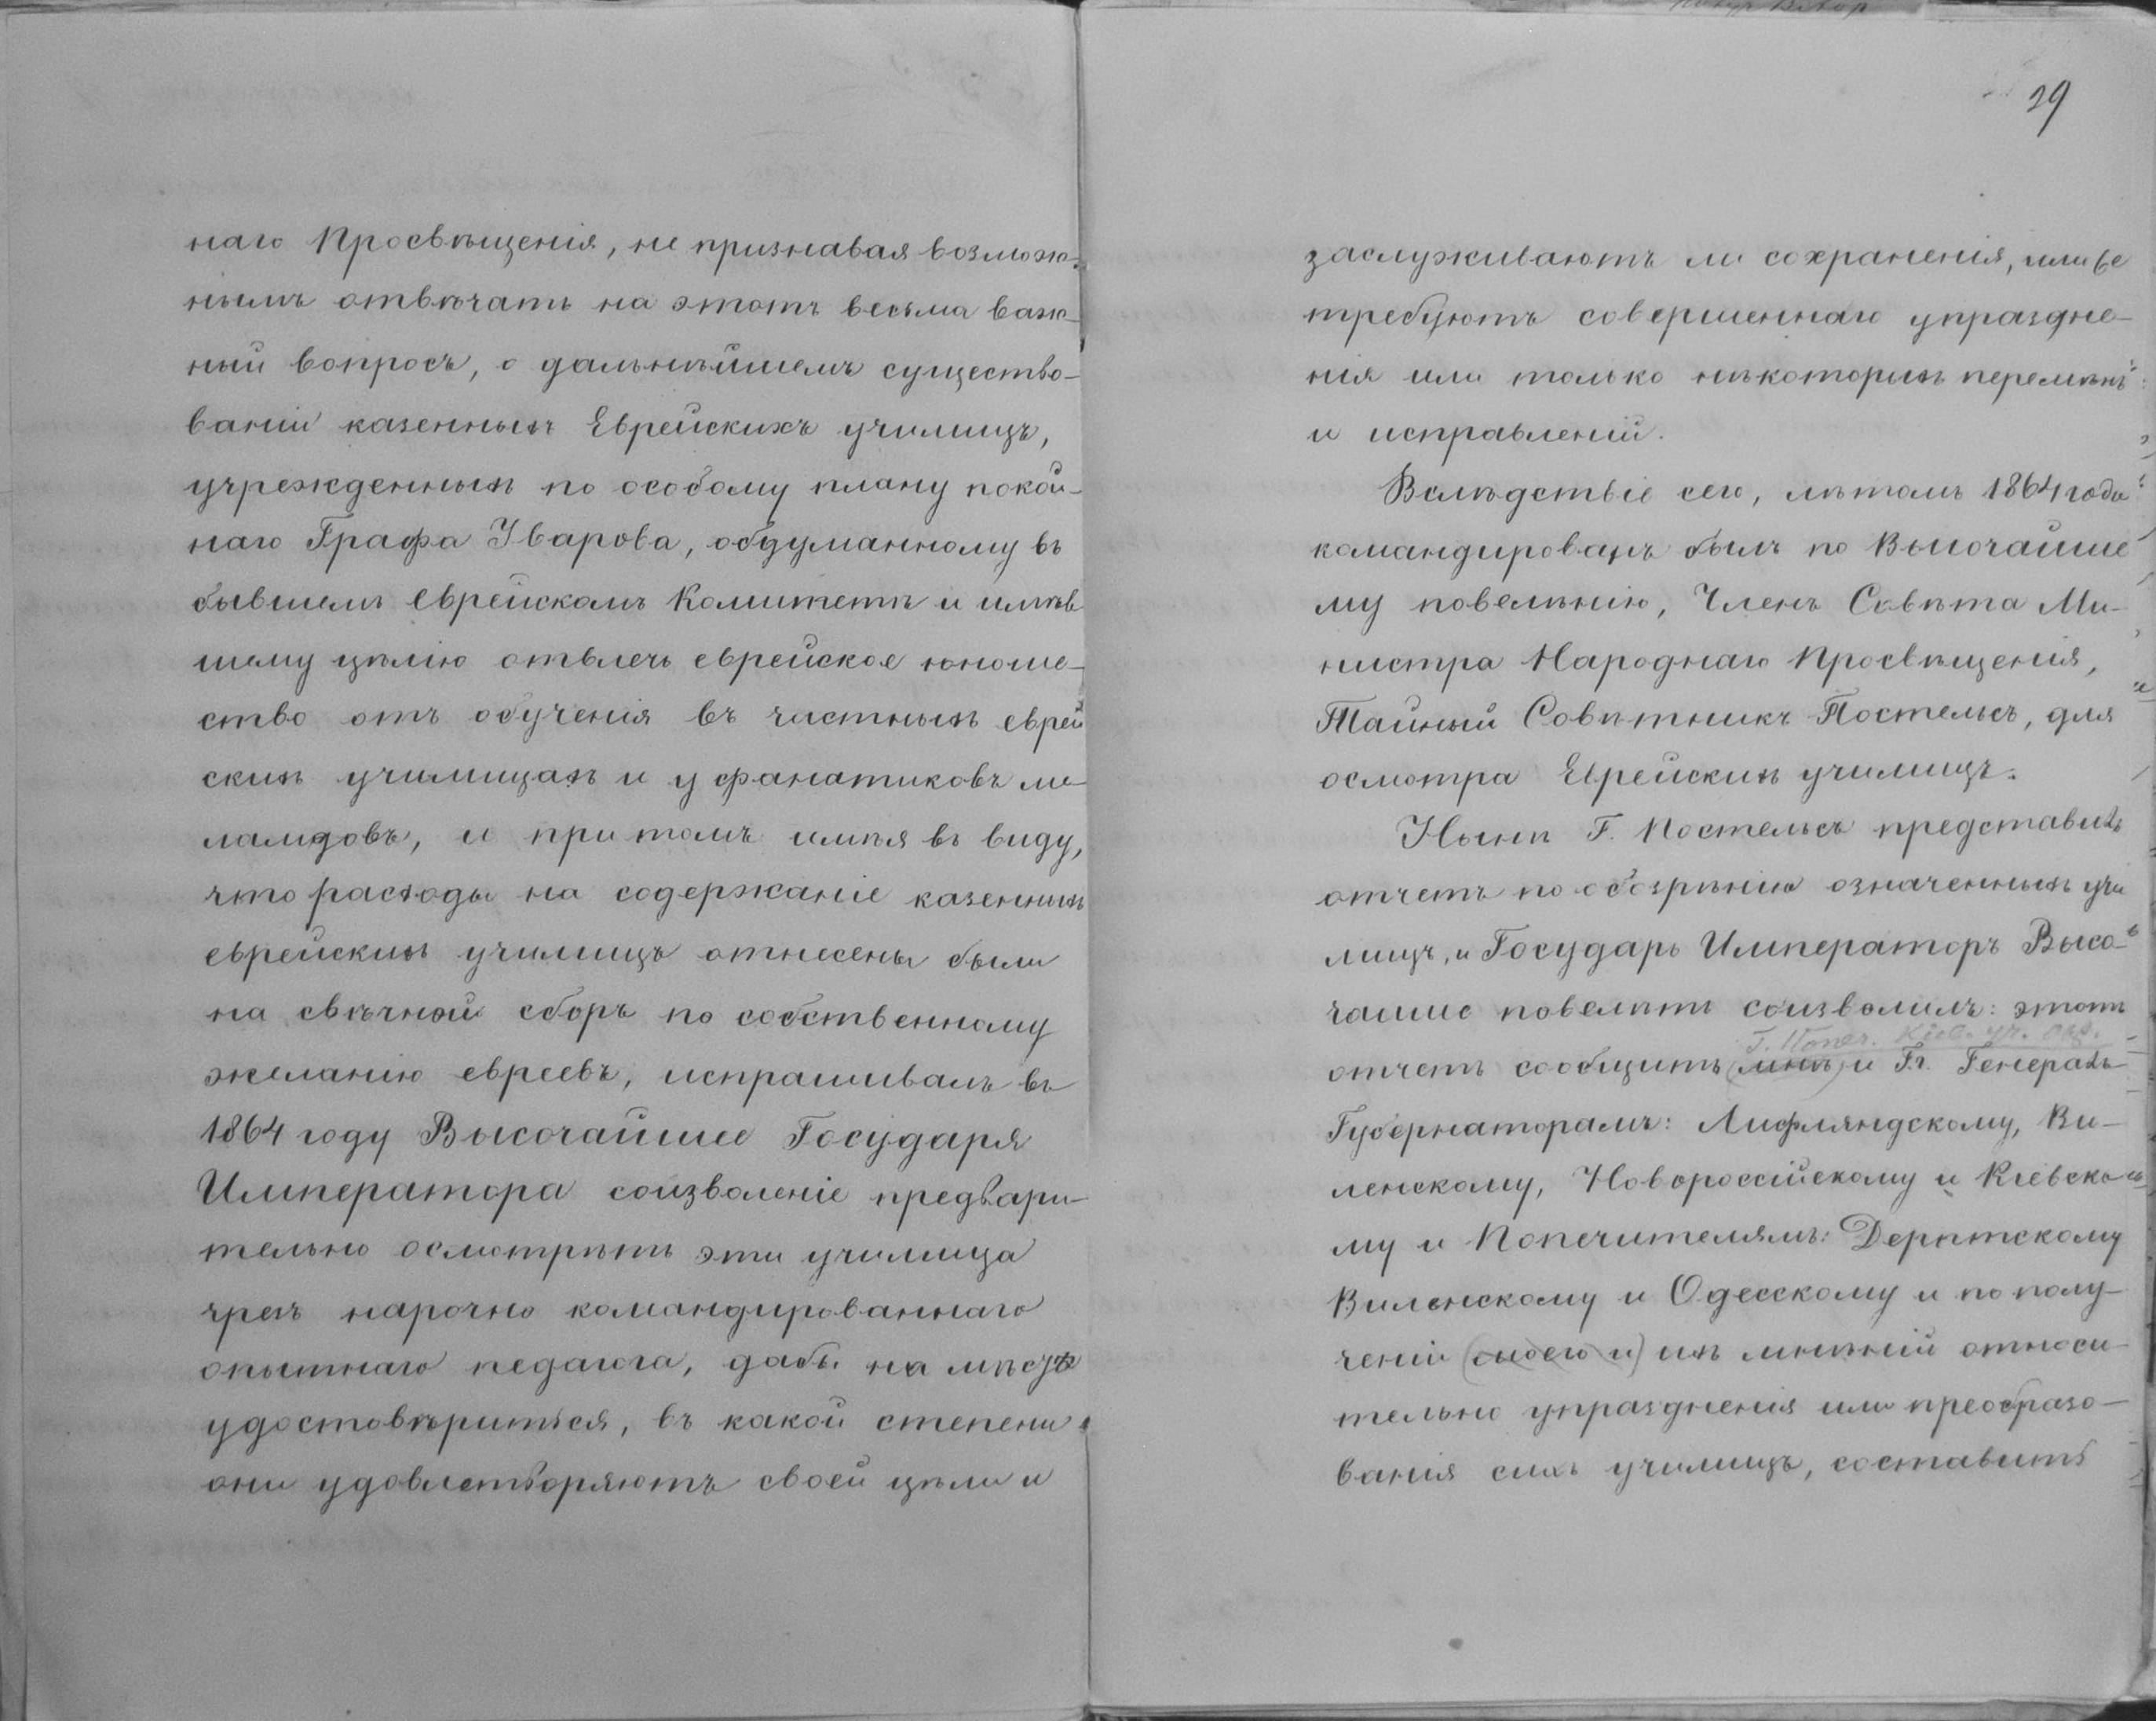 наго Просвѣщенія, не признавая возмож-
нымъ отвѣчать на этотъ весьма важ-
ный вопросъ, о дальнѣйшемъ существо-
ваніи казенныхъ Еврейскихъ училищъ,
учрежденныхъ по особому плану покой-
наго Графа Уварова, обдуманному въ
бывшемъ Еврейскомъ Комитетѣ и имѣв
шему цѣлію отвлечь еврейское юноше-
ство отъ обученія въ частныхъ еврей
скихъ училищахъ и у фанатиковъ ме-
ламдовъ, и при томъ имѣя въ виду,
что расходы на содержаніе казенныхъ
еврейскихъ училищъ отнесены были
на свѣчной сборъ по собственному
желанію евреевъ, испрашивалъ въ
1864 году Высочайшее Государя
Императора соизволеніе предвари-
тельно осмотрѣть эти училища
чрезъ нарочно командированнаго
опытнаго педагога, дабы на мѣстѣ
удостовѣриться, въ какой степени
они удовлетворяютъ своей цѣли и
29
заслуживаютъ ли сохраненія, или же
требуютъ совершеннаго упраздне-
нія или только нѣкоторыхъ перемѣнъ
и исправленій.
Вслѣдствіе сего, лѣтомъ 1864 года
командированъ былъ по Высочайше
му повелѣнію, Членъ Совѣта Ми-
нистра Народнаго Просвѣщенія,
Тайный Совѣтникъ Постельсъ, для
осмотра Еврейскихъ училищъ.
Нынѣ Г. Постельсъ представилъ
отчетъ по обозрѣнію означенныхъ учи
лищъ, и Государь Императоръ Высо-
чайше повелѣть соизволилъ: этотъ
Г. Попеч. Кіев. Уч. Окр.
отчетъ сообщить (мнѣ) и Гг. Генералъ
Губернаторамъ: Лифляндскому, Ви-
ленскому, Новороссійскому и Кіевско-
му и Попечителямъ: Дерптскому
Виленскому и Одесскому и по полу-
ченіи (моего и) ихъ мнѣній относи-
тельно упраздненія или преобразо-
ванія сихъ училищъ, составить